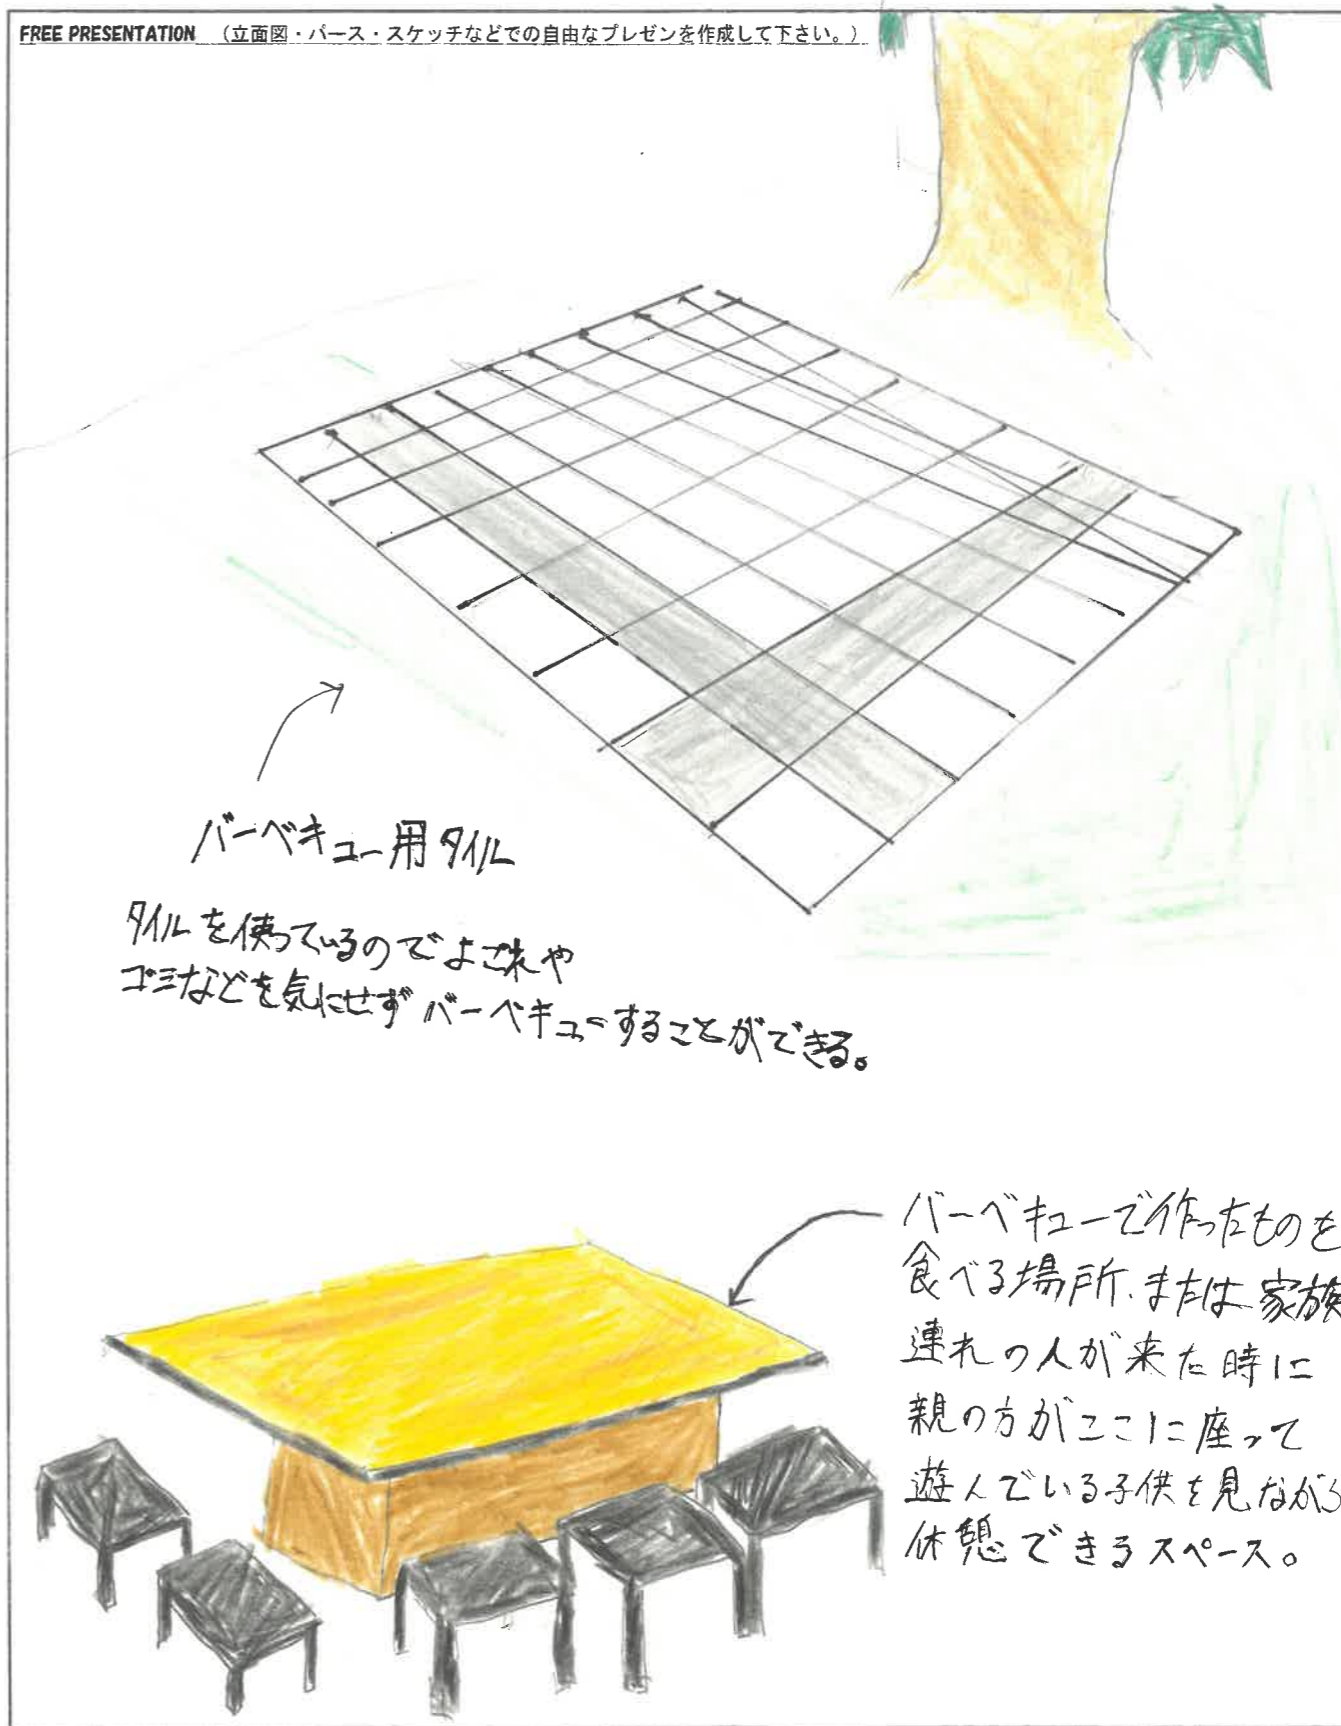 FREE PRESENTATION （立面図・パース・スケッチなどでの自由なプレゼンを作成して下さい。）
バーベキュー用タイル
タイルを使っているのでよごれや
ゴミなどを気にせずバーベキューすることができる。
バーベキューで作ったものを
食べる場所、または家族
連れの人が来た時に
親の方がここに座って
遊んでいる子供を見ながら
休憩できるスペース。